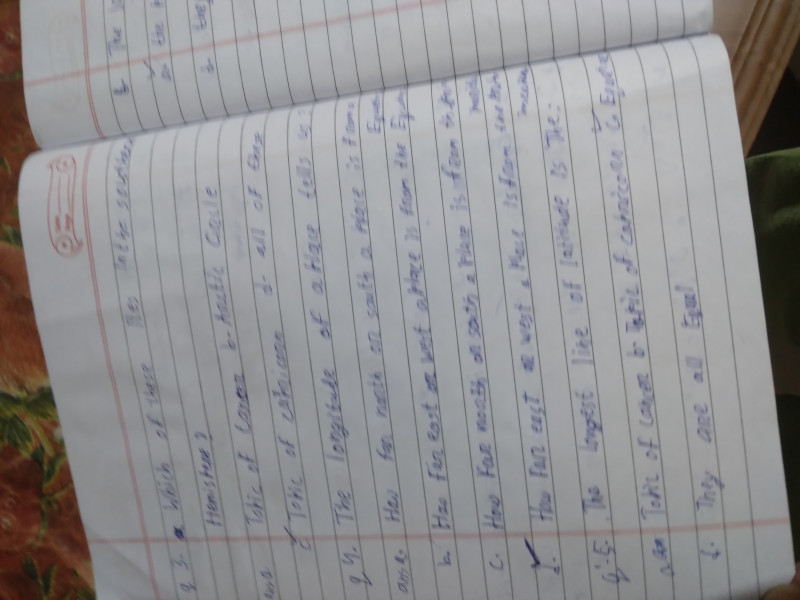 b. The
a. the
d. the
Q 3. a Which of these lies in the southern
Hemisfree?
ans a Topic of Cancer b. Arcitic Circle
c Topic of capricorn d. all of these
Q 4. The longitude of a place tells us:
ans a. How far north or south a place is from
Equa
b. How far east or west a place is from the Equa
c. How far north or south a place is from the
d. How far east or west a place is from the
Q.5. The longest line of latitude is The:
a. Topic of cancer b Topic of capricorn c Equa
d. They are all Equal